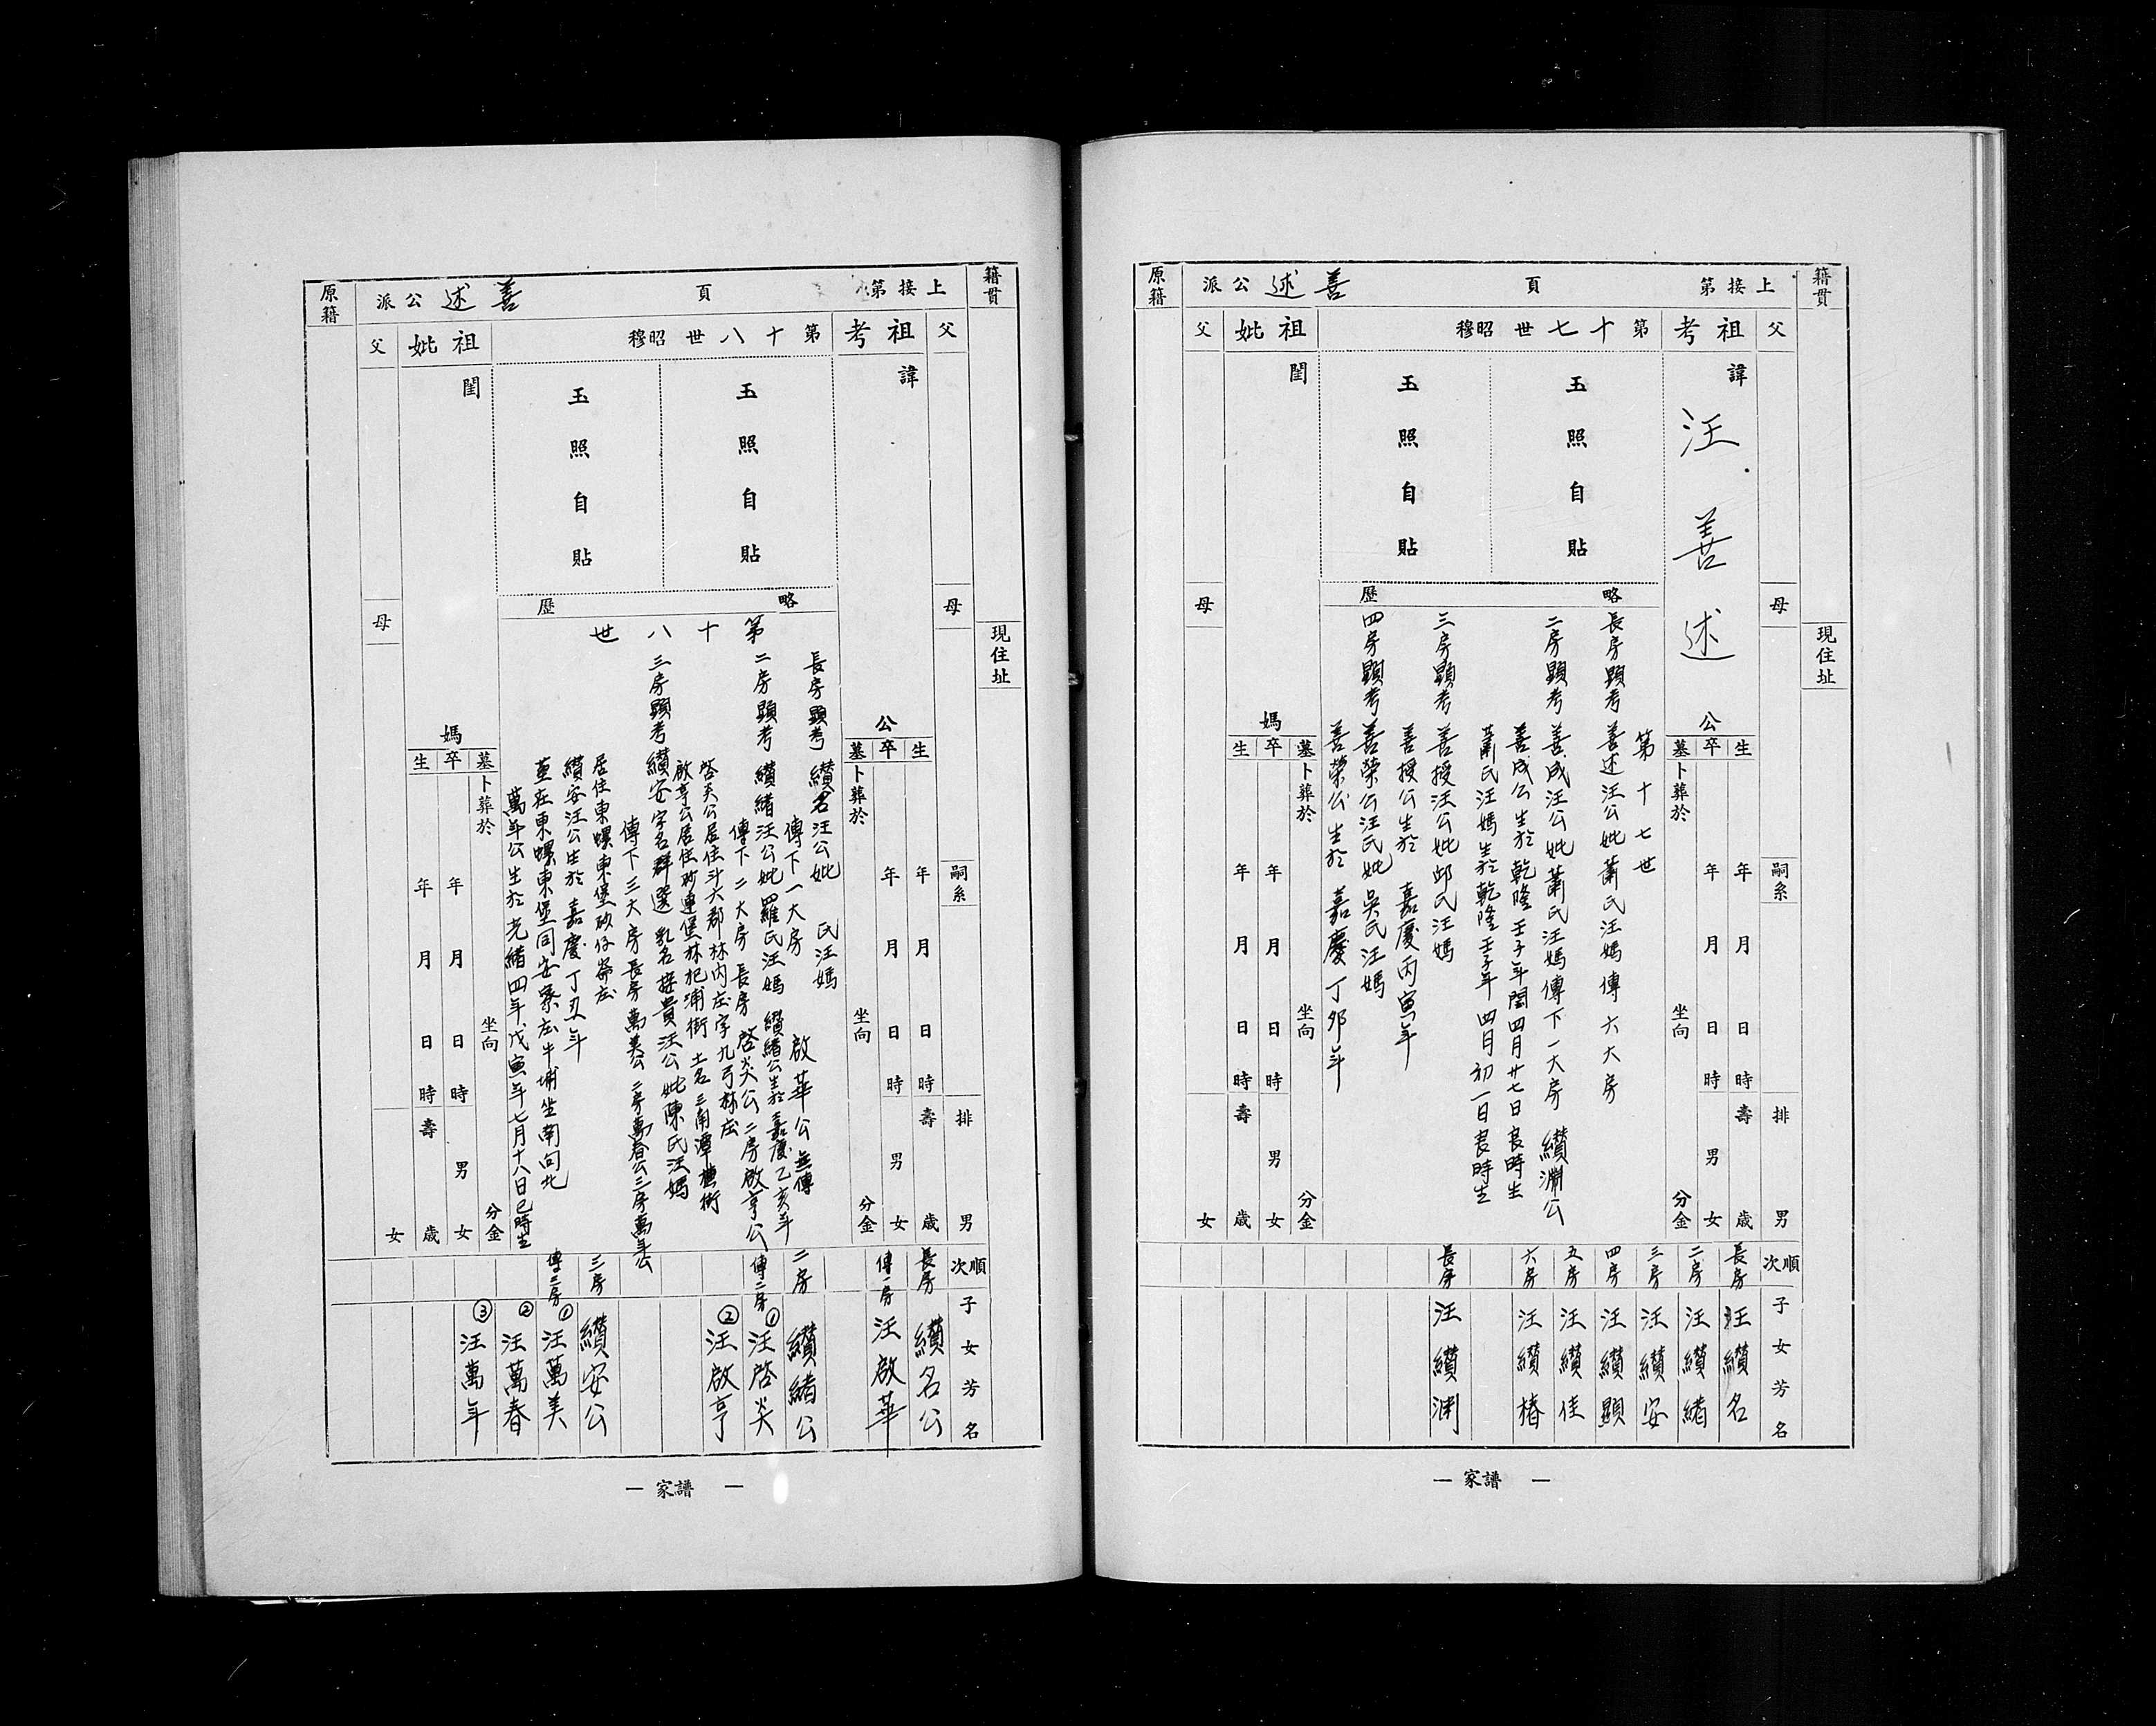 籍貫
現住址
上接第　頁　善述公派
原籍
父
母
祖考
第十七世昭穆
祖妣
父
母
諱
汪善述
公
閨
媽
玉照自貼
玉照自貼
略歷
第十七世
長房顯考　善述汪公妣蕭氏汪媽傳六大房
二房顯考　善成汪公妣蕭氏汪媽傳下一大房　纘淵公
善成公生於乾隆壬子年閏四月廿七日良時生
蕭氏汪媽生於乾隆壬子年四月初一日良時生
三房顯考　善授汪公妣邱氏汪媽
善授公生於　嘉慶丙寅年
四房顯考　善榮公汪氏妣吳氏汪媽
善榮公生於　嘉慶丁卯年
嗣系
排
男
生　年　月　日　時　壽　歲
卒　年　月　日　時　男　女
墓卜葬於　坐向　分金
墓卜葬於　坐向　分金
卒　年　月　日　時　男　女
生　年　月　日　時　壽　歲
女
順次　子女芳名
長房　汪纘名
二房　汪纘緒
三房　汪纘安
四房　汪纘顯
五房　汪纘佳
六房　汪纘椿
長房　汪纘渊
一　家譜　一
籍貫
現住址
上接第　頁　善述公派
原籍
父
母
祖考
第十八世昭穆
祖妣
父
母
諱
公
閨
媽
玉照自貼
玉照自貼
略歷
第十八世
長房顯考　纘名汪公妣　氏汪媽
傳下一大房　啟華公無傳
二房顯考　纘緒汪公妣羅氏汪媽　纘緒公生於嘉慶乙亥年
傳下二大房　長房　啓炎公二房啟亨公
啓炎公居住斗六郡林內庄字九弓林庄
啟亨公居住沙連堡林圯浦街土名三角潭橫街
三房顯考　纘安字名群選乳名接貴汪公妣陳氏汪媽
傳下三大房長房萬美公二房萬春公三房萬年公
居住東螺東堡砂仔崙庄
纘安汪公生於嘉慶丁丑年
墓在東螺東堡同安寮庄牛埔坐南向北
萬年公生於光緒四年戊寅年七月十八日巳時生
嗣系
排
男
生　年　月　日　時　壽　歲
卒　年　月　日　時　男　女
墓卜葬於　坐向　分金
墓卜葬於　坐向　分金
卒　年　月　日　時　男　女
生　年　月　日　時　壽　歲
女
順次　子女芳名
長房　纘名公
傳一房　汪啟華
二房　纘緒公
傳二房　①汪啓炎
②汪啟亨
三房　纘安公
傳三房　①汪萬美
②汪萬春
③汪萬年
一　家譜　一